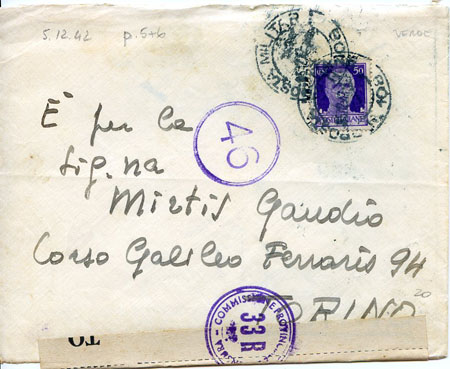 5.12.42 p.5+6
POSTA MILITARE
50
È per la
Sig.na
46
Mirtis Gaudio
Corso Galileo Ferraris 94
TORINO
20
COMMISSIONE PROVINCIALE
33R
TO